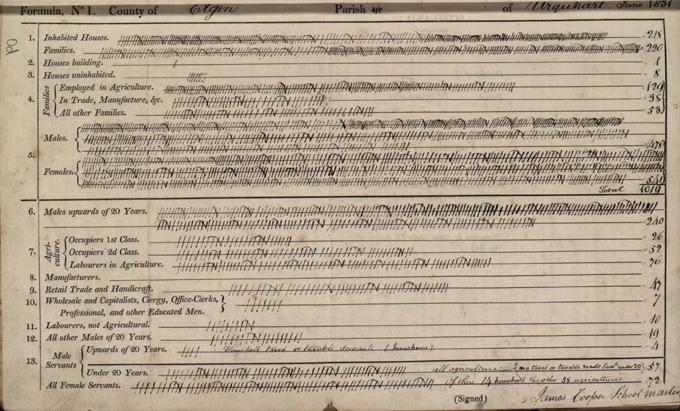 Formula, No 1. County of Elgin Parish of Urquhart June 1831
1. Inhabited Houses. 218
Families. 220
2. Houses building. 1
3. Houses uninhabited. 8
4. Families { Employed in Agriculture. 129
In Trade, Manufacture, &c. 38
All other Families. 53
5. Males.
Females.
Total 1019
6. Males upwards of 20 Years. 240
7. Agriculture. { Occupiers 1st Class. 26
Occupiers 2d Class. 52
Labourers in Agriculture. 76
8. Manufacturers.
9. Retail Trade and Handicraft. 47
10. Wholesale and Capitalists, Clergy, Office-Clerks, Professional, and other Educated Men. 7
11. Labourers, not Agricultural. 10
12. All other Males of 20 Years. 19
13. Male Servants { Upwards of 20 Years. Household taxed or taxable servants 4
Under 20 Years. all agricultural 2 no taxed or taxable under 20 57
All Female Servants. Of these 14 household the other 58 agricultural 72
(Signed) James Cooper School master